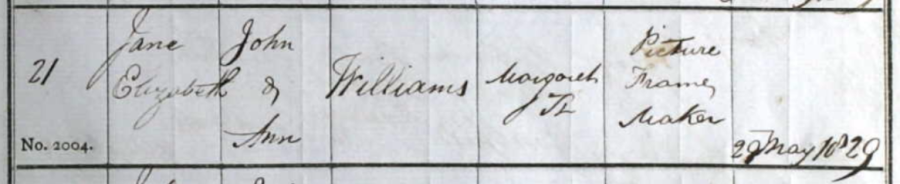 21
No. 2004.
Jane
Elizabeth
John
&
Ann
Williams
Margaret
St
Picture
Frame
Maker
May 10th 29